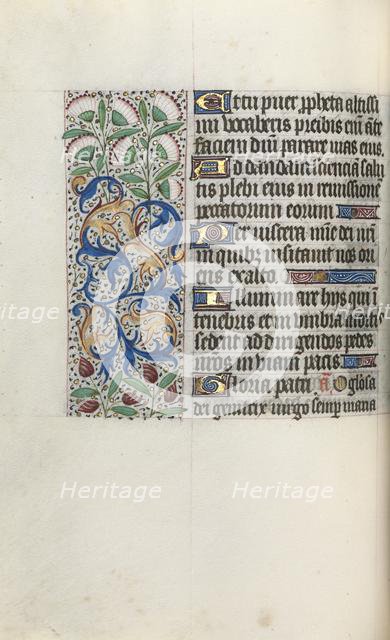 Et tu puer ppheta altissi
mi vocaberis preibis eni ante
faciem dni parare vias eius.
Ad dandam scienciam salu
tis plebi eius in remissione
peccatorum eorum
Per viscera mie dei nri
in quibus visitavit nos ori
ens ex alto.
Illuminare hys qui i
tenebris et in umbra mortis
sedent ad dirigendos pedes
nros in viam pacis
Gloria patri a O gloriosa
dei genitrix virgo semper maria
Heritage
Heritage
Heritage
Heritage